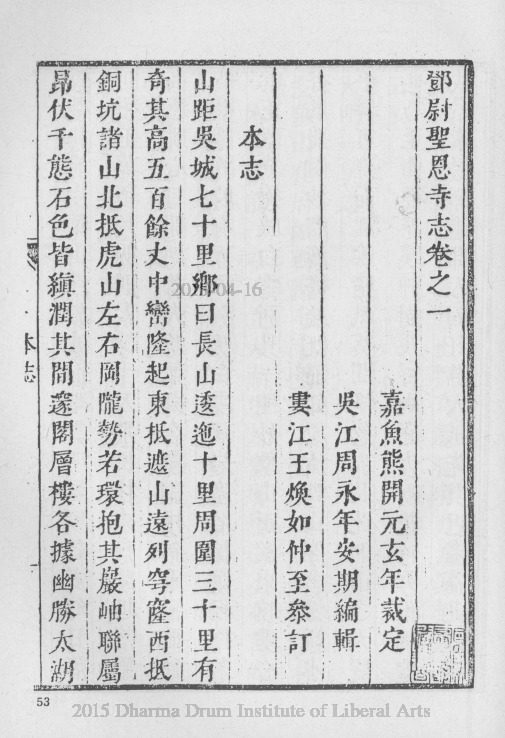 鄧尉聖恩寺志卷之一
嘉魚熊開元玄年裁定
吳江周永年安期編輯
婁江王煥如仲至叅訂
本志
山距吳城七十里鄉曰長山逶迤十里周圍三十里有
奇其高五百餘丈中巒隆起東抵遮山遠列穹窿西抵
銅坑諸山北抵虎山左右岡隴勢若環抱其巖岫聯屬
昂伏千態石色皆縝潤其間邃閣層樓各據幽勝太湖
本志
53
2015-04-16
2015 Dharma Drum Institute of Liberal Arts